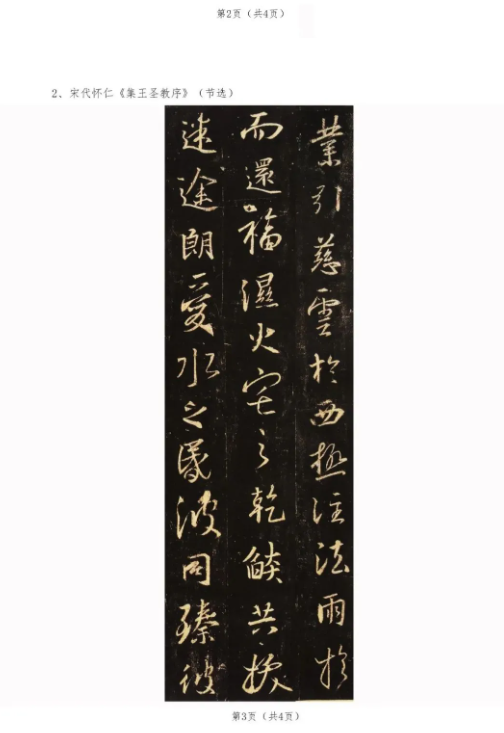 第2页（共4页）
2、宋代怀仁《集王圣教序》（节选）
業引慈雲於西極注法雨於
而還福濕火宅之乾燄共拔
迷途朗愛水之昬波同臻彼
第3页（共4页）